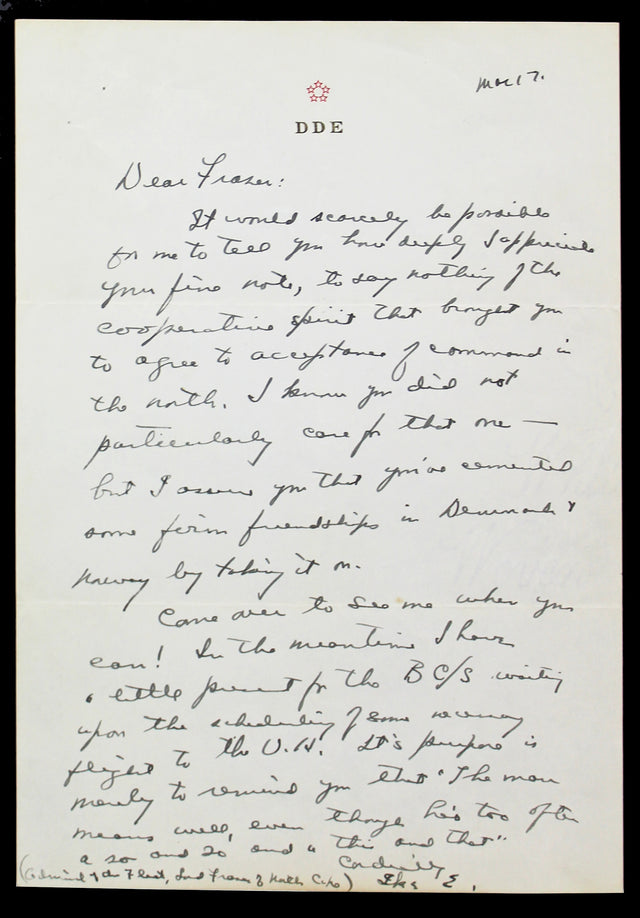 Mar 17.
DDE
Dear Fraser:
It would scarcely be possible
for me to tell you how deeply I appreciate
your fine note, to say nothing of the
cooperative spirit that brought you
to agree to acceptance of command in
the north. I know you did not
particularly care for that one —
but I assure you that you've cemented
some firm friendships in Denmark &
Norway by taking it on.
Come over to see me when you
can! In the meantime I have
a little present for the BC/S waiting
upon the scheduling of some necessary
flight to the U.K. It's purpose is
merely to remind you that "The man
means well, even though he's too often
a so and so and a this and that"
Cordially
Ike E.
(Admiral of the Fleet, Lord Fraser of North Cape)